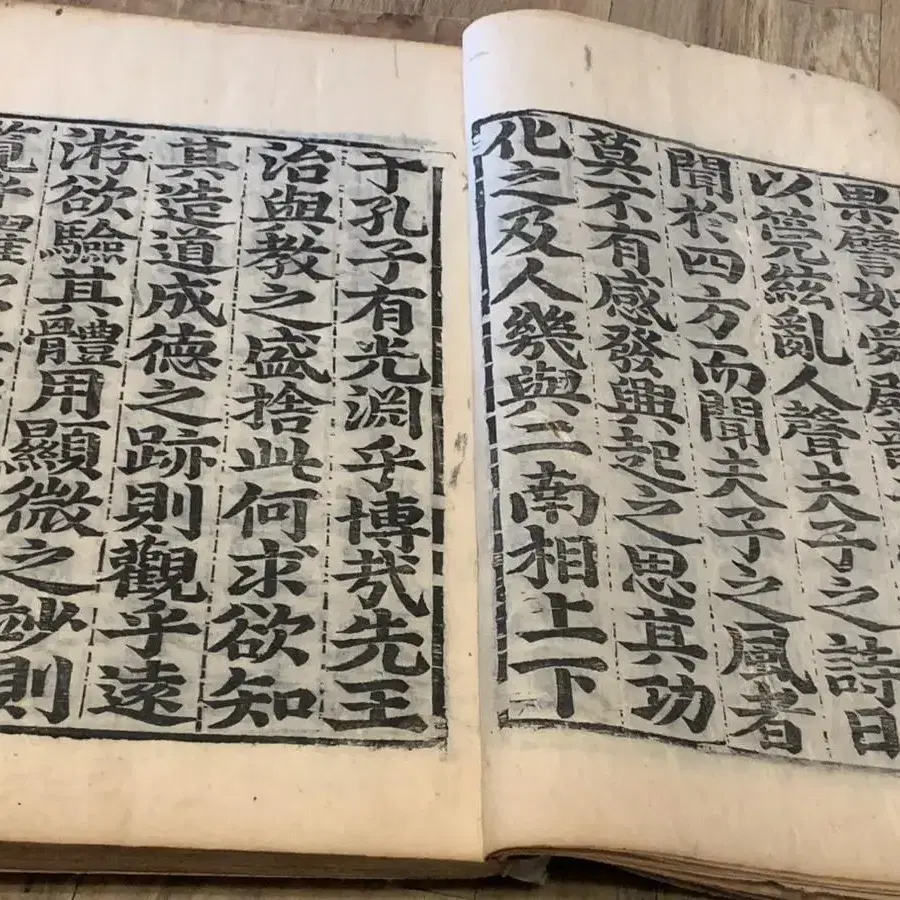 果
以筦絃亂人聲夫子之詩日
聞於四方而聞夫子之風者
莫不有感發興起之思其功
化之及人幾與二南相上下
于孔子有光渕乎博哉先王
治與教之盛捨此何求欲知
其造道成德之跡則觀乎遠
游欲驗其體用顯微之妙則